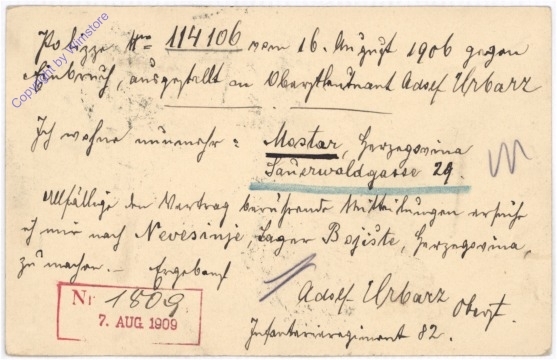 Polizze Nro 114106 vom 16. August 1906 gegen
Einbruch, ausgestellt an Oberstleutnant Adolf Urbarz
Ich wohne nunmehr: Mostar, Herzegovina
Sauerwaldgasse 29.
Allfällige den Vertrag berührende Mitteilungen ersuche
ich mir nach Nevesinje, Lager Bojište, Herzegovina,
zu machen. – Ergebenst
Adolf Urbarz Oberst
Infanterieregiment 82.
Nr. 1809
7. AUG. 1909
Copyright by Wimstore